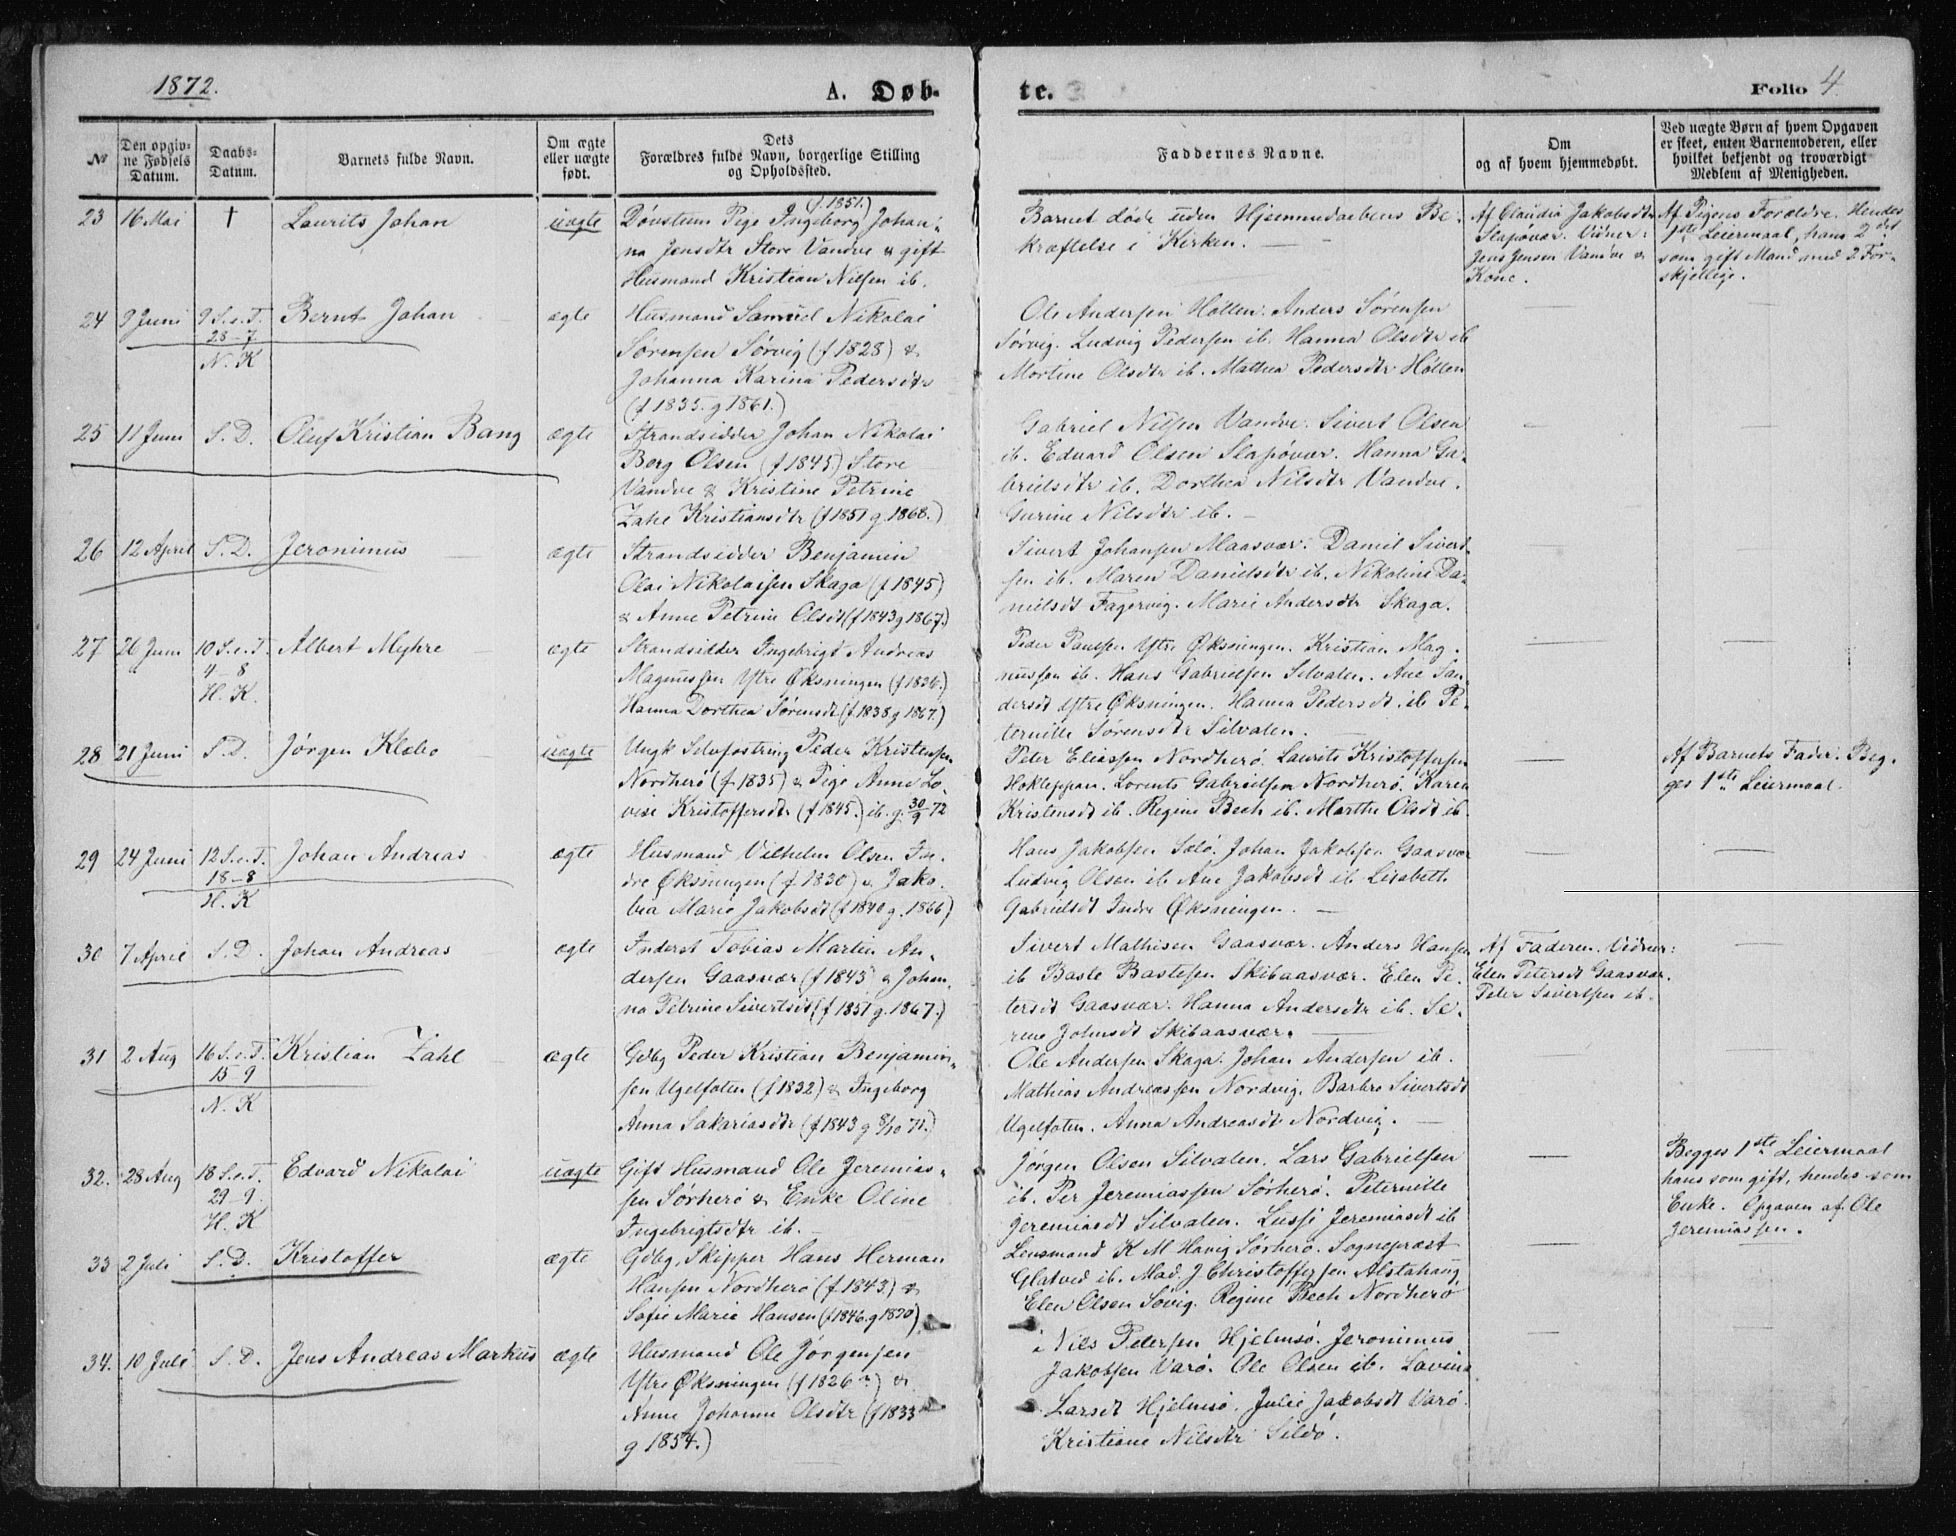 1872.
A. Døb-
te.
Folio 4
№
Den opgiv-
ne Fødsels
Datum.
Daabs-
Datum.
Barnets fulde Navn.
Om ægte
eller uægte
født.
Dets
Forældres fulde Navn, borgerlige Stilling
og Opholdssted.
Faddernes Navne.
Om
og af hvem hjemmedøbt.
Ved uægte Børn af hvem Opgaven
er skeet, enten Barnemoderen, eller
hvilket bekjendt og troværdigt
Medlem af Menigheden.
23 16 Mai † Laurits Johan uægte
(f. 1851.)
Døvstum Pige Ingeborg Johan-
na Jensdtr Store Vandve & gift
Husmand Kristian Nilsen ib.
Barnet døde uden Hjemmedaabens Be-
kræftelse i Kirken. —
Af Claudia Jakobsdtr
Slapøvær. Vidner:
Jens Jensen Vandve &
Kone.
Af Pigens Forældre. Hendes
1ste Leiermaal, hans 2det
som gift Mand med 2 For-
skjellige.
24 9 Juni 9 S. e. T. Bernt Johan ægte
28-7
N. K
Husmand Samuel Nikolai
Sørensen Sørvig (f 1828) &
Johanna Karina Pedersdtr
(f 1835. g 1861.)
Ole Andersen Holten. Anders Sørensen
Sørvig. Ludvig Pedersen ib. Hanna Olsdtr ib
Mortine Olsdtr ib. Mathea Pedersdtr Holten
25 11 Juni S. D. Oluf Kristian Bang ægte
Strandsidder Johan Nikolai
Berg Olsen (f 1845) Store
Vandve & Kristine Petrine
Zahl Kristiansdtr (f 1851 g. 1868.)
Gabriel Nilsen Vandve. Sivert Olsen
ib. Edvard Olsen Slapøvær. Hanna Ga-
brielsdtr ib. Dorthea Nilsdtr Vandve.
Gurine Nilsdtr ib. —
26 12 April S. D. Jeronimus ægte
Strandsidder Benjamin
Olai Nikolaisen Skaga (f 1845)
& Anne Petrine Olsdt (f 1843 g 1867.)
Sivert Johansen Maasvær. Daniel Sivert-
sen ib. Maren Danielsdtr ib. Nikoline Da-
nielsdt Fagervig. Marie Andersdtr Skaga.
27 26 Juni 10 S. e. T. Albert Myhre ægte
4-8
H. K.
Strandsidder Ingebrigt Andreas
Magnussen Ytre Øksningen (f 1836.)
Hanna Dorthea Sørensdt (f 1838 g 1867.)
Peder Paulsen Ytre Øksningen. Kristian Mag-
nussen ib. Hans Gabrielsen Silvalen. Ane San-
dersdt Ytre Øksningen. Hanna Pedersdt ib Pe-
ternille Sørensdtr Silvalen.
28 21 Juni S. D. Jørgen Klæbo uægte
Ungk Selvfostring Peder Kristensen
Nordherø (f. 1835) & Pige Anne Lo-
vise Kristoffersdtr (f 1845.) ib. g. 30/9 72
Peter Eliassen Nordherø. Laurits Kristoffersen
Hokleppan. Lorents Gabrielsen Nordherø. Karen
Kristensdt ib. Regine Bech ib. Marthe Olsdt ib.
Af Barnets Fader. Beg-
ges 1ste Leiermaal.
29 24 Juni 12 S. e. T. Johan Andreas ægte
18-8
H. K
Husmand Vilhelm Olsen In-
dre Øksningen (f. 1830) & Jako-
bia Marie Jakobsdt (f 1840 g. 1866)
Hans Jakobsen Sælø. Johan Jakobsen Gaasvær
Ludvig Olsen ib. Ane Jakobsdt ib. Lisabeth
Gabrielsdt Indre Øksningen. —
30 7 April S. D. Johan Andreas ægte
Inderst Tobias Martin An-
dersen Gaasvær (f 1845) & Johan-
na Petrine Sivertsdt (f 1851 g. 1867.)
Sivert Mathisen Gaasvær. Anders Hansen
ib Baste Bastesen Skibaasvær. Elen Pe-
tersdt Gaasvær. Hanna Andersdtr ib. Se-
rine Johnsdt Skibaasvær.
Af Faderen. Vidner:
Elen Petersdt Gaasvær.
Peter Sivertsen ib.
31 2 Aug 16 S. e. T. Kristian Zahl ægte
15-9
N. K
Gdbg Peder Kristian Benjamin-
sen Ugelfoten (f 1832) & Ingeborg
Anna Sakariasdtr (f 1843 g 8/10 71.)
Ole Andersen Skaga. Johan Andersen ib.
Mathias Andreassen Nordvig. Barbro Sivertsdt
Ugelfoten. Anna Andreasdt Nordvig. —
32. 28 Aug 18 S. e. T. Edvard Nikolai uægte
29-9.
H. K
Gift Husmand Ole Jeremias-
sen Sørherø & Enke Oline
Ingebrigtsdtr ib. —
Jørgen Olsen Silvalen. Lars Gabrielsen
ib. Per Jeremiassen Sørherø. Peternille
Jeremiasdt Silvalen. Lussi Jeremiasdt ib
Begges 1ste Leiermaal
hans som gift, hendes som
Enke. Opgaven af Ole
Jeremiassen.
33 2 Juli S. D. Kristoffer ægte
Gdbg, Skipper Hans Herman
Hansen Nordherø (f. 1843.) &
Sofie Marie Hansen (f 1846. g 1870)
Lensmand K M Havig Sørherø. Sognepræst
Glatved ib. Mad. J Christoffersen Alstahaug
Elen Olsen Søvig. Regine Bech Nordherø
34. 10 Juli S. D. Jens Andreas Markus ægte
Husmand Ole Jørgensen
Ytre Øksningen (f 1826) &
Anne Johanne Olsdtr (f 1833
g 1854.)
Nils Petersen Hjelmsø. Jeronimus
Jakobsen Varø. Ole Olsen ib. Lavina
Larsdt Hjelmsø. Julie Jakobsdt Varø.
Kristiane Nilsdtr Sildø.